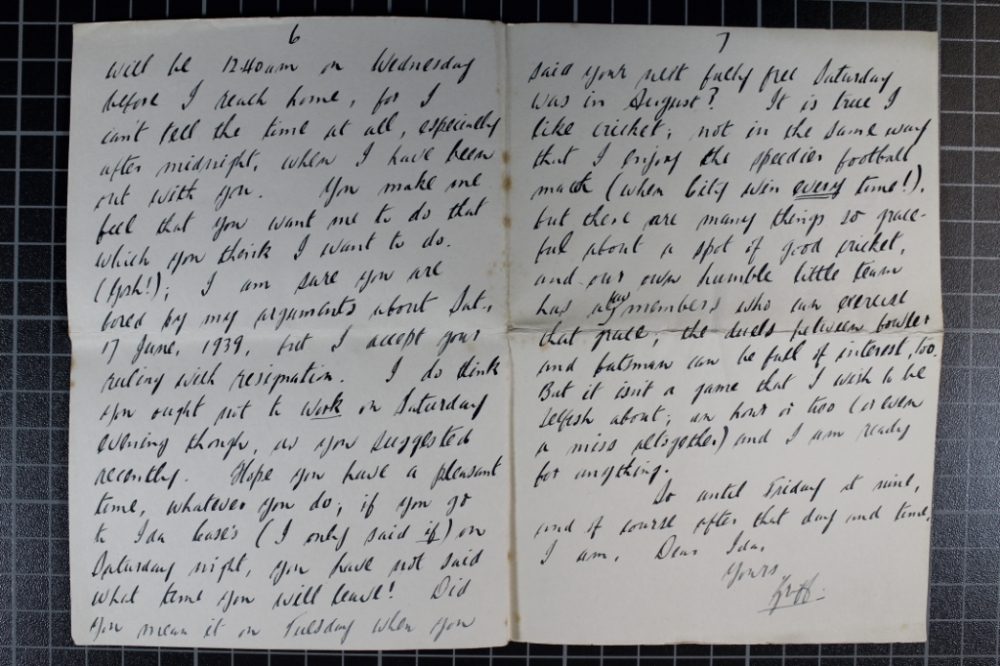 6
will be 12.40am on Wednesday
before I reach home, for I
can't tell the time at all, especially
after midnight, when I have been
out with you. You make me
feel that you want me to do that
which you think I want to do.
(Gosh!); I am sure you are
bored by my arguments about Sat.,
17 June, 1939, but I accept your
ruling with resignation. I do think
you ought not to work on Saturday
evening though, as you suggested
recently. Hope you have a pleasant
time, whatever you do; if you go
to Ida (I only said if) on
Saturday night, you have not said
what time you will leave! Did
you mean it on Tuesday when you
7
said your next fully free Saturday
was in August? It is true I
like cricket; not in the same way
that I enjoy the speedier football
match (when City win every time!).
but there are many things so grace-
ful about a spot of good cricket,
and our own humble little team
has a few members who can exercise
that grace; the duels between bowler
and batsman can be full of interest, too.
But it isn't a game that I wish to be
selfish about; an hour or two (or even
a miss altogether) and I am ready
for anything.
So until Friday at nine,
and of course after that day and time,
I am, Dear Ida,
Yours